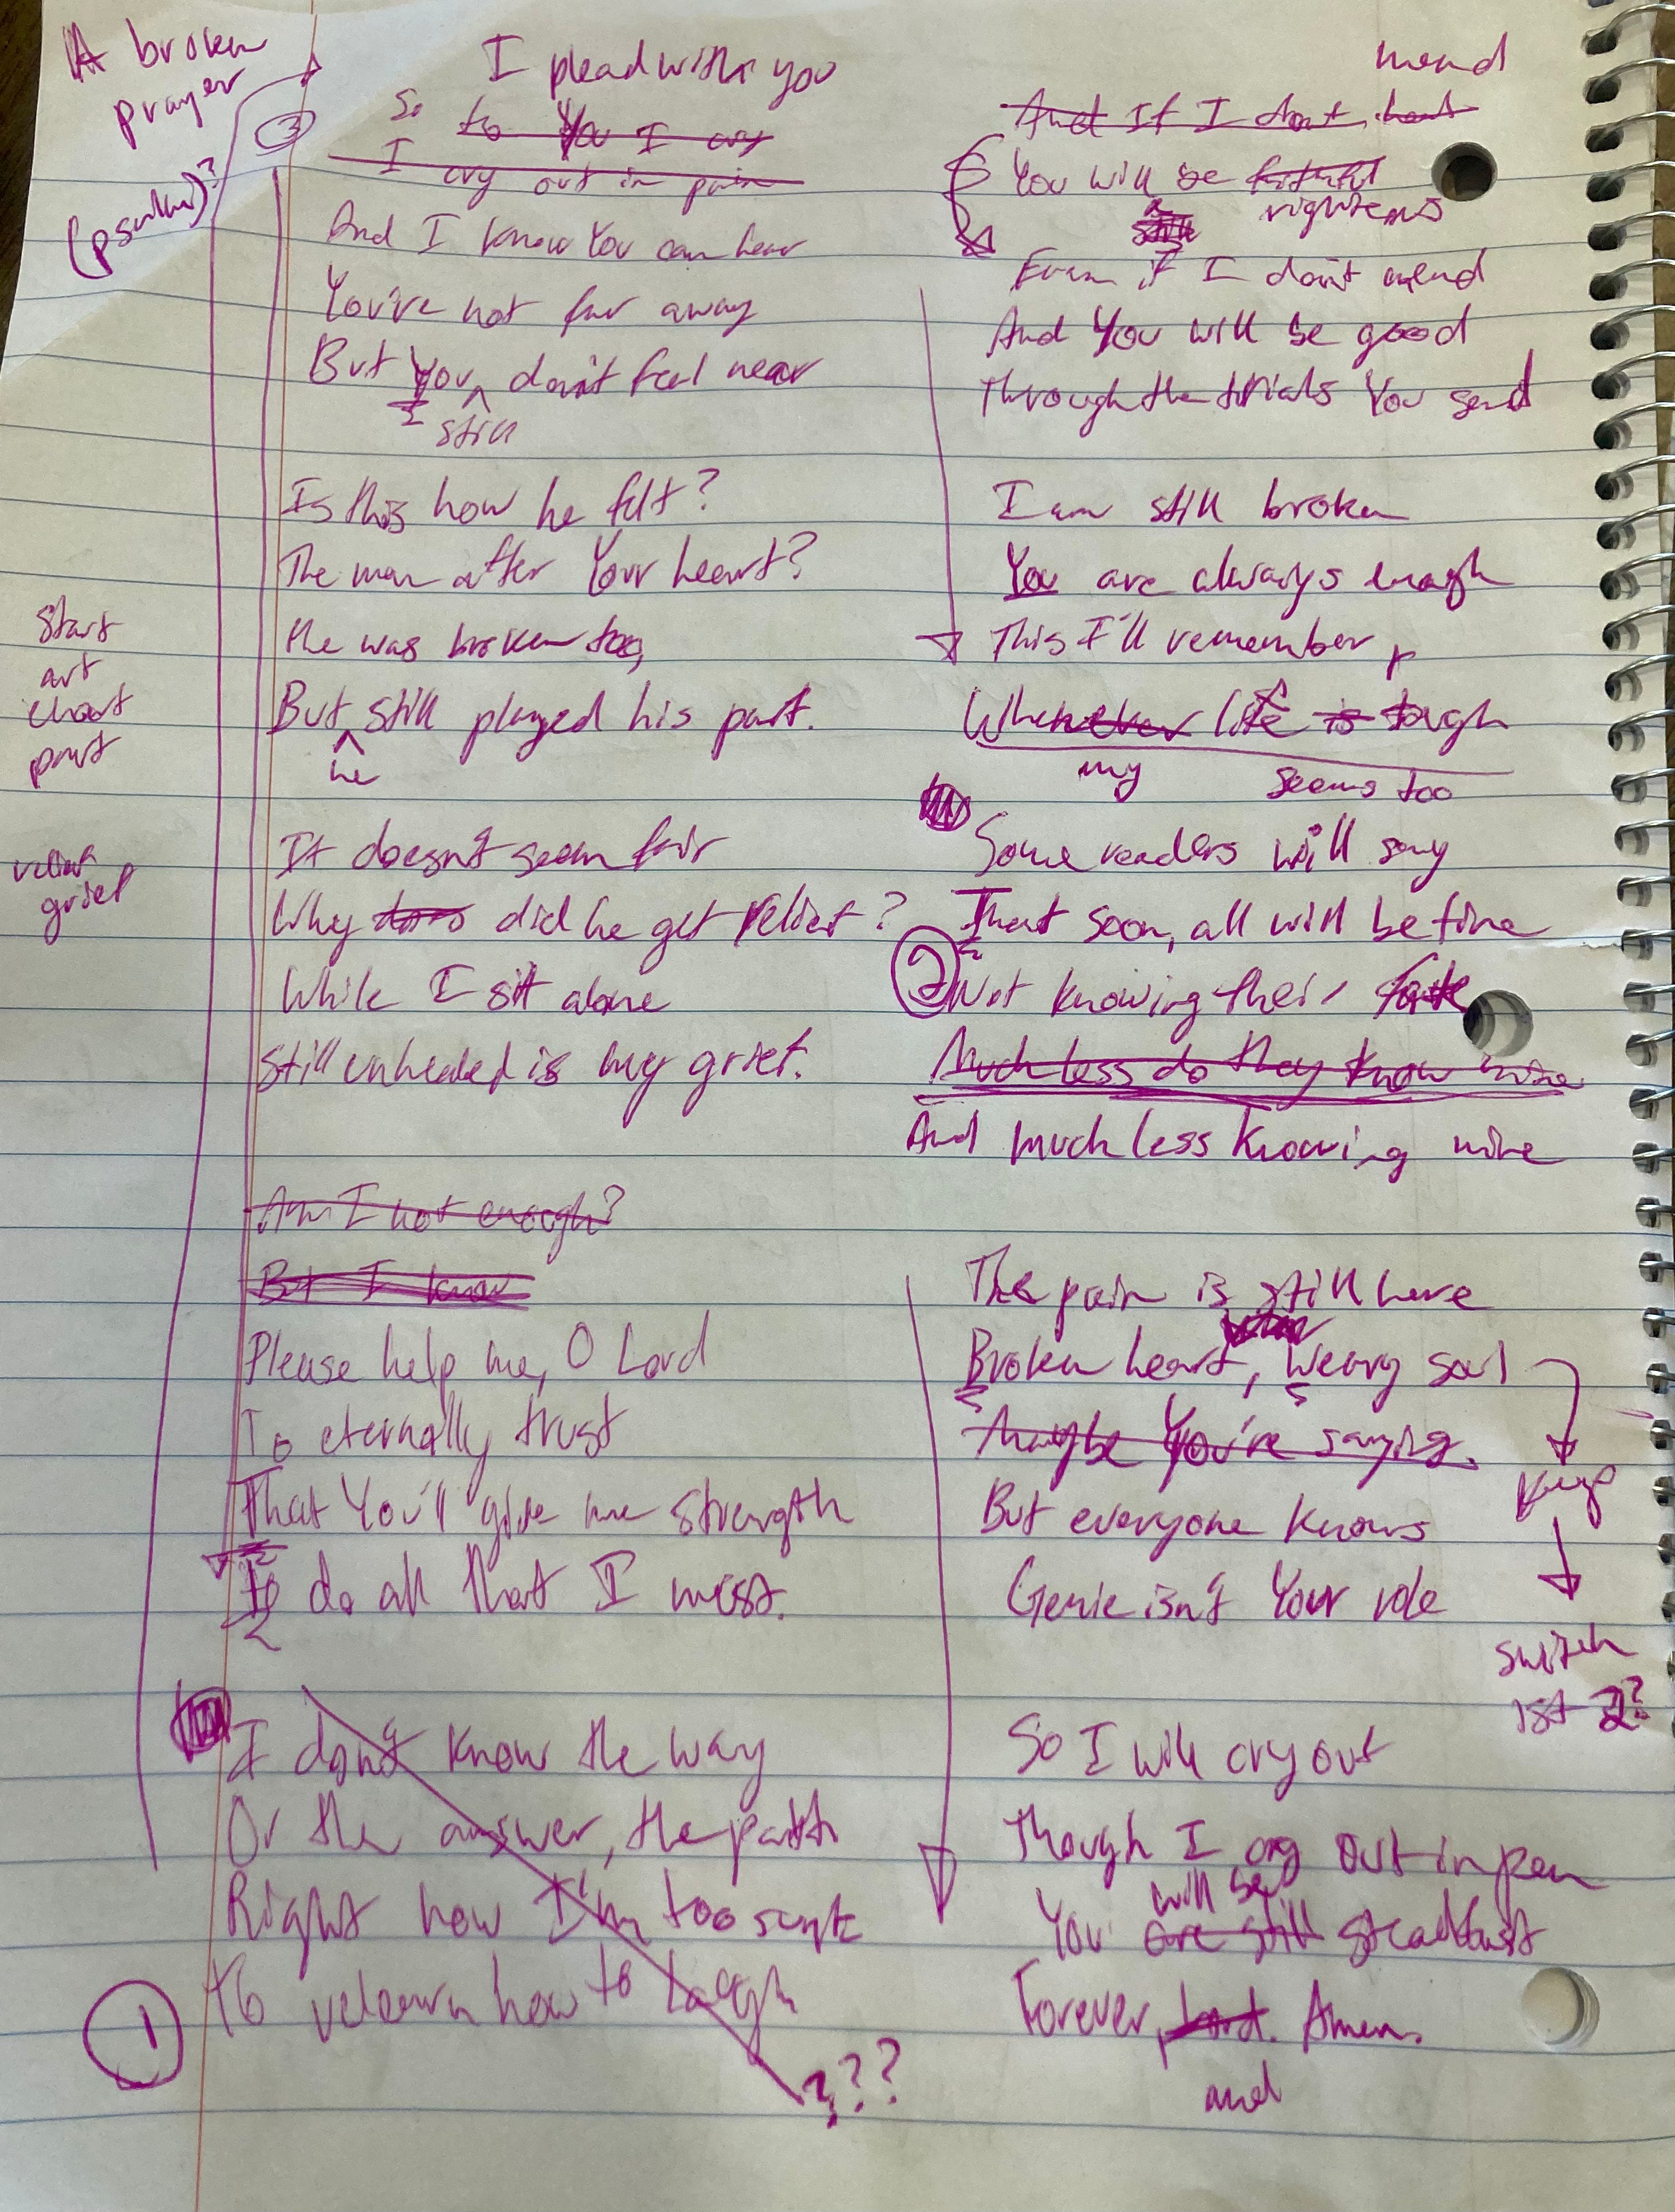 A broken
prayer
(psalm)?
3
I plead with you
So to You I cry
I cry out in pain
And I know You can hear
You're not far away
But You don't feel near
still
Is this how he felt?
The man after Your heart?
He was broken too,
But still played his part.
he
start
art
chart
part
It doesn't seem fair
Why does did he get relief?
While I sit alone
Still unhealed is my grief.
relief
grief
Am I not enough?
But I know
Please help me, O Lord
To eternally trust
That You'll give me strength
To do all that I must.
I don't know the way
Or the answer, the path
Right now I'm too
to relearn how to laugh
1
???
mend
And If I don't
You will be faithful
righteous
still
Even if I don't mend
And You will be good
Through the trials You send
I am still broken
You are always enough
This I'll remember
Whenever life is tough
my seems too
Some readers will say
That soon, all will be fine
2
Not knowing their fate
Much less do they know mine
And much less knowing mine
The pain is still here
Broken heart, Weary soul
Maybe You're saying
But everyone knows
Genie isn't Your role
keep
switch
1st 2?
So I will cry out
Though I cry out in pain
will be
You are still steadfast
Forever, Lord. Amen.
and